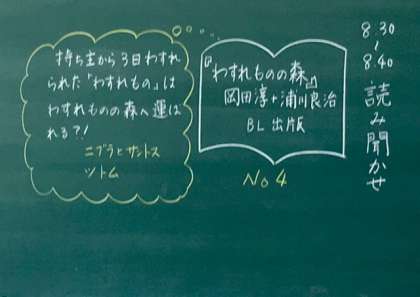 8:30
~
8:40
読み聞かせ
『わすれものの森』
岡田淳+浦川良治
BL出版
No 4
持ち主から3日わすれ
られた「わすれもの」は
わすれものの森へ運ば
れる?!
ニブラとサントス
ツトム